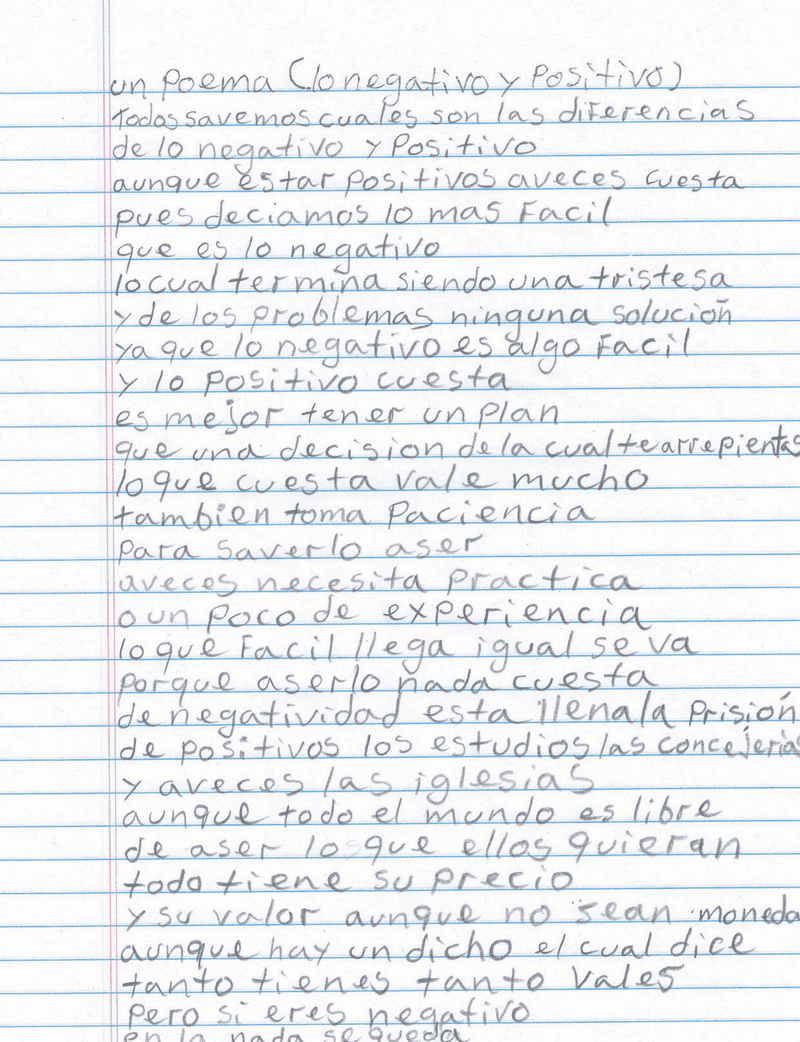 un poema (lo negativo y positivo)
todos savemos cuales son las diferencias
de lo negativo y positivo
aunque estar positivos aveces cuesta
pues deciamos lo mas facil
que es lo negativo
lo cual termina siendo una tristesa
y de los problemas ninguna solución
ya que lo negativo es algo facil
y lo positivo cuesta
es mejor tener un plan
que una decision de la cual te arrepientas
lo que cuesta vale mucho
tambien toma paciencia
para saverlo aser
aveces necesita practica
o un poco de experiencia
lo que facil llega igual se va
porque aserlo nada cuesta
de negatividad esta llena la prisión
de positivos los estudios las concejerías
y aveces las iglesias
aunque todo el mundo es libre
de aser los que ellos quieran
todo tiene su precio
y su valor aunque no sean moneda
aunque hay un dicho el cual dice
tanto tienes tanto vales
pero si eres negativo
en la nada se queda